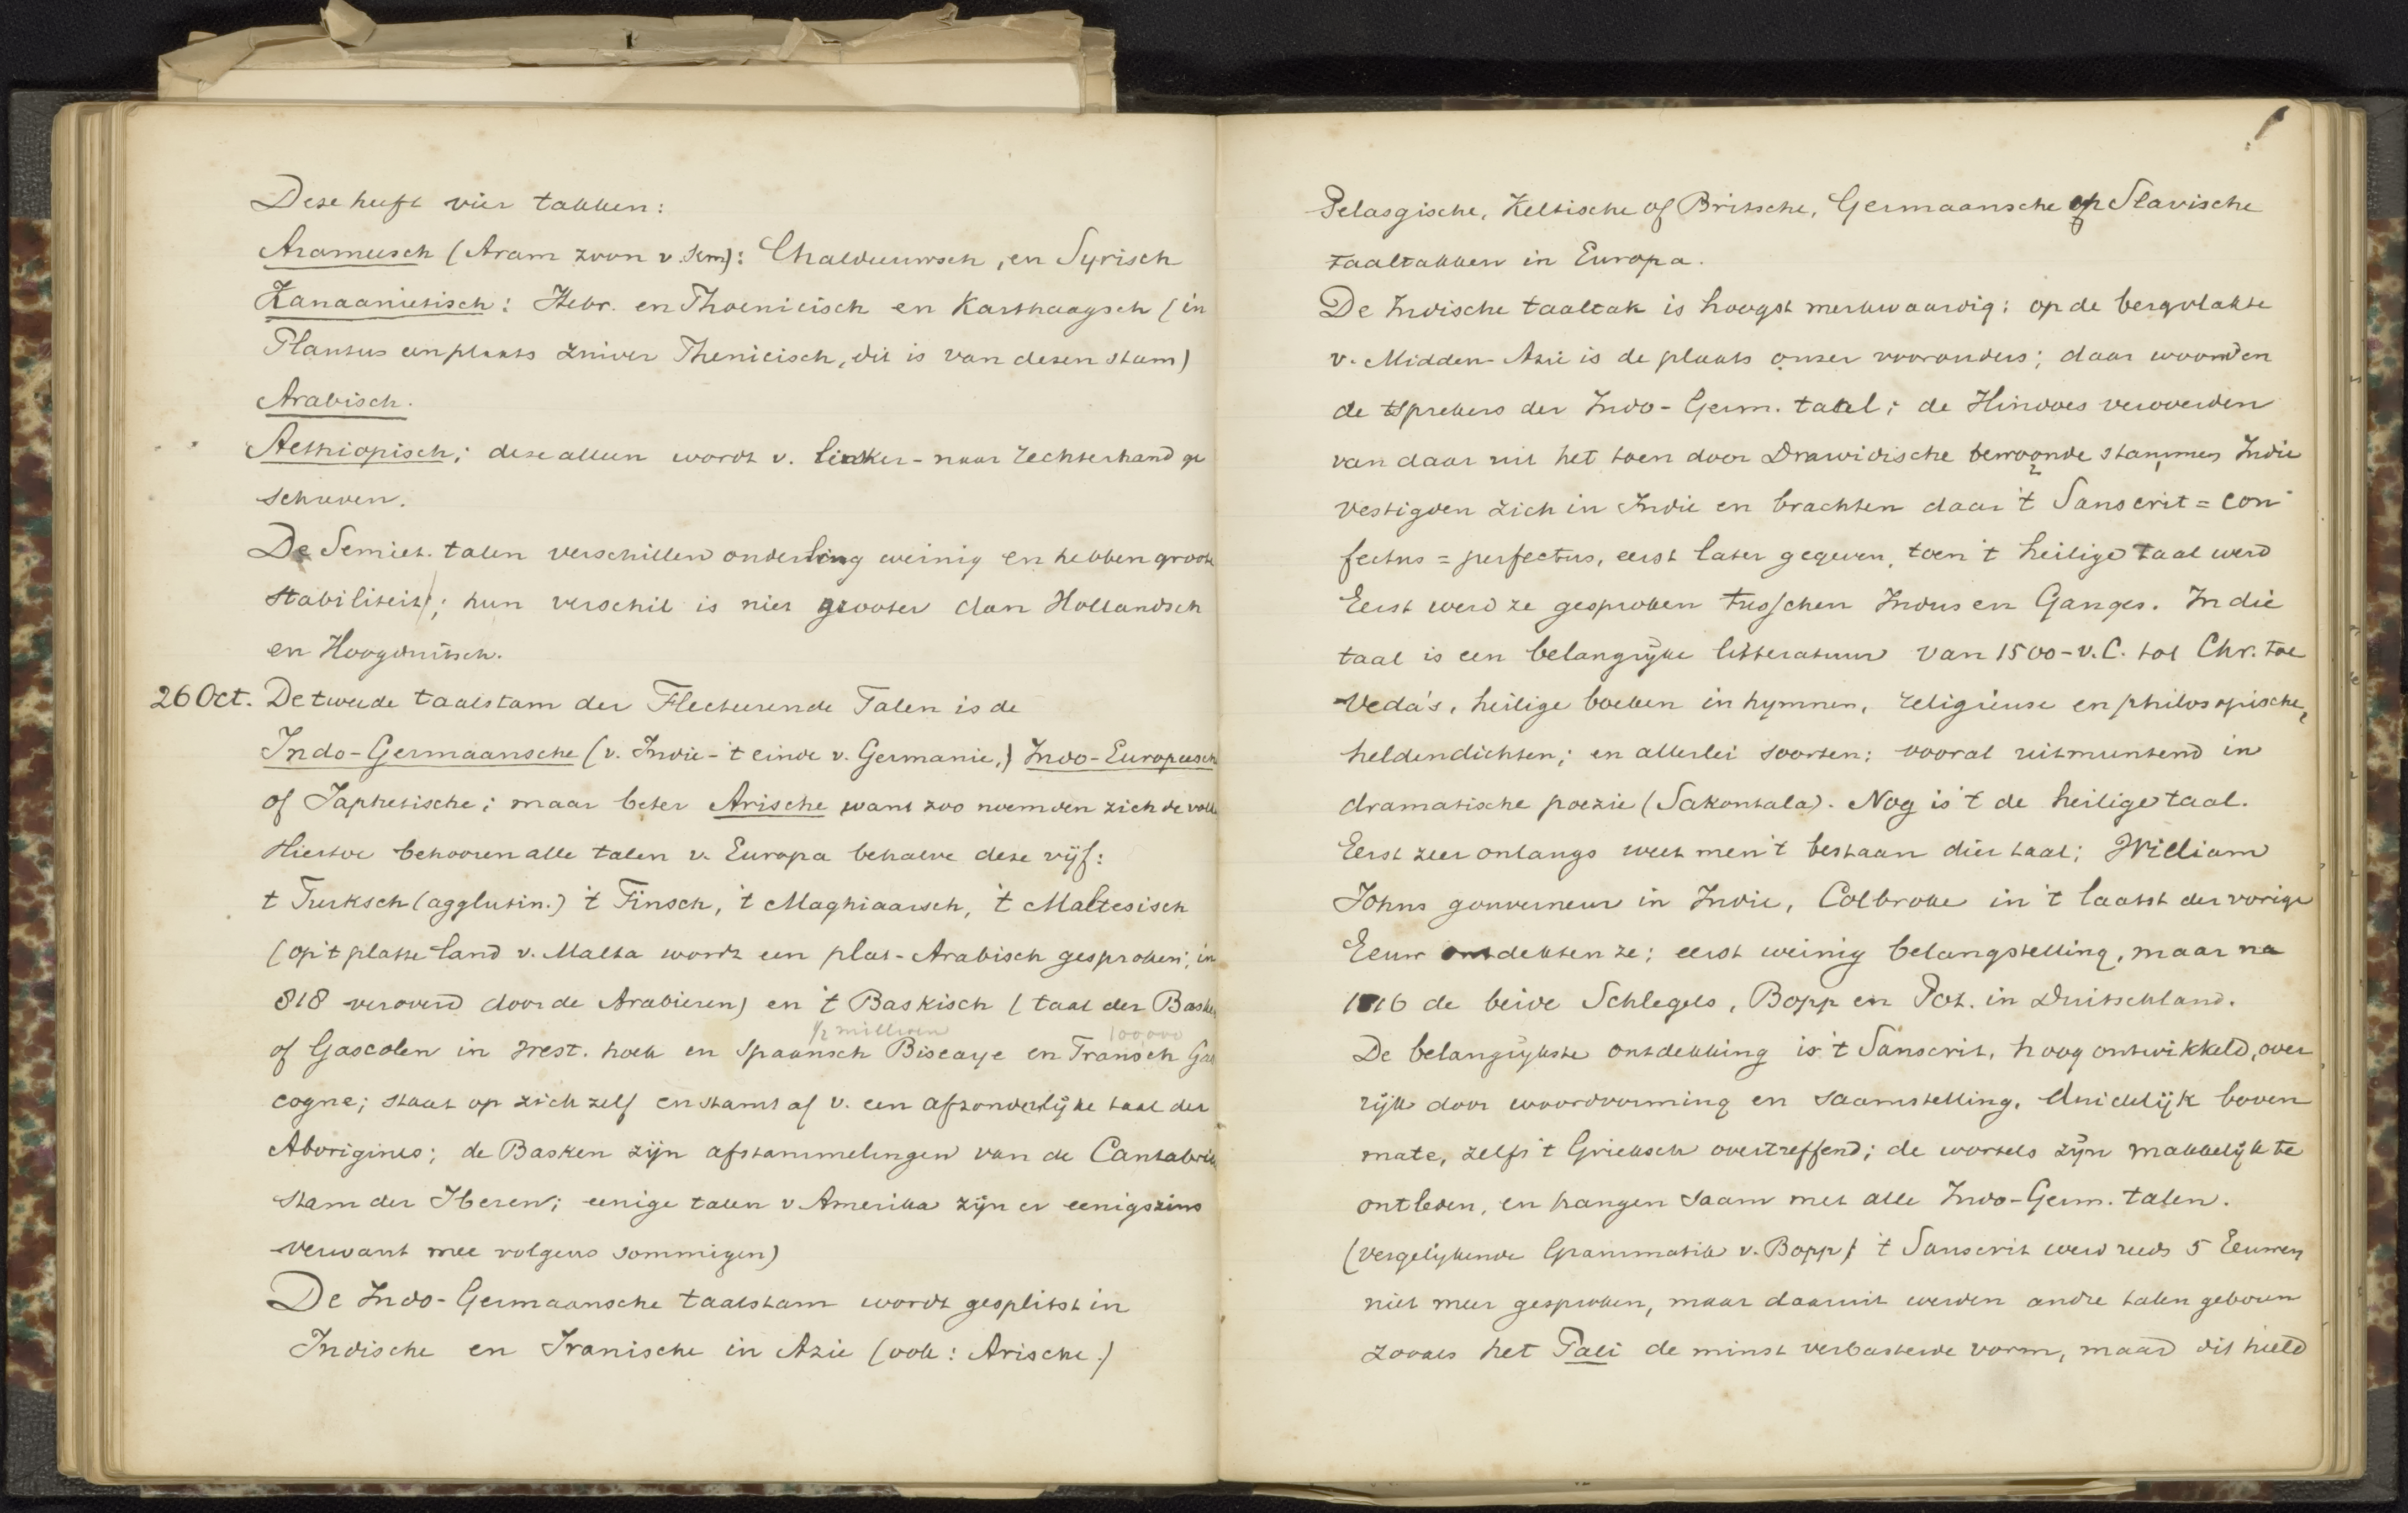 Deze heeft vier takken:
Arameesch (Aram zoon v. Sem): Chaldeeuwsch, en Syrisch
Kanaanietisch: Hebr. en Phoenicisch en Karthaagsch (in
Plautus een plaats zuiver Phenicisch, dit is van dezen stam)
Arabisch.
Aethiopisch; deze alleen wordt v. linker- naar rechterhand ge
schreven.
De Semiet. talen verschillen onderling weinig en hebben groote
stabiliteit; hun verschil is niet grooter dan Hollandsch
en Hoogduitsch.
26 Oct. De tweede taalstam der Flecteerende Talen is de
Indo-Germaansche (v. Indie-'t einde v. Germanie,) Indo-Europeesch
of Japhetische; maar beter Arische want zoo noemden zich de volk
Hiertoe behooren alle talen v. Europa behalve deze vijf:
't Turksch (agglutin.) 't Finsch, 't Maghiaarsch, 't Maltesisch
(op 't platte land v. Malta wordt een plat-Arabisch gesproken; in
818 veroverd door de Arabieren) en 't Baskisch (taal der Basken
1/2 millioen 100,000
of Gascolen in west. hoek en Spaansch Biscaye en Fransch Gas
cogne; staat op zich zelf en stamt af v. een afzonderlijke taal der
Aborigines; de Basken zijn afstammelingen van de Cantabriers
stam der Iberen; eenige talen v Amerika zijn er eenigszins
verwant mee volgens sommigen)
De Indo-Germaansche taalstam wordt gesplitst in
Indische en Iranische in Azie (ook: Arische.)
Pelasgische, Keltische of Britsche, Germaansche en Slavische
taaltakken in Europa.
De Indische taaltak is hoogst merkwaardig: op de bergvlakte
v. Midden-Azie is de plaats onzer voorouders; daar woonden
de sprekers der Indo-Germ. taal; de Hindoes veroverden
van daar uit het toen door Drawidische bewoonde stammen Indie
vestigden zich in Indie en brachten daar 't Sanscrit = con
fectus = perfectus, eerst later gegeven, toen 't heilige taal werd
Eerst werd ze gesproken tusschen Indus en Ganges. In die
taal is een belangrijke litteratuur van 1500-v.C. tot Chr. toe
Veda's, heilige boeken in hymnen, religieuse en philosopische,
heldendichten; en allerlei soorten; vooral uitmuntend in
dramatische poezie (Sakontala). Nog is 't de heilige taal.
Eerst zeer onlangs weet men 't bestaan dier taal; William
Johns gouverneur in Indie, Colbroke in 't laatst der vorige
Eeuw ontdekten ze; eerst weinig belangstelling, maar na
1816 de beide Schlegels, Bopp en Pot. in Duitschland.
De belangrijkste ontdekking is 't Sanscrit, hoog ontwikkeld, over
rijk door woordvorming en saamstelling, duidelijk boven
mate, zelfs 't Grieksch overtreffend; de wortels zijn makkelijk te
ontleden, en hangen saam met alle Indo-Germ. talen.
(vergelijkende Grammatik v. Bopp) 't Sanscrit werd reeds 5 Eeuwen
niet meer gesproken, maar daaruit werden andre talen geboren
zooals het Pali de minst verbasterde vorm, maar dit hield